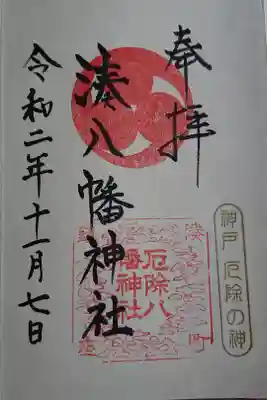 奉拝
神戸 厄除の神
湊八幡神社
厄除八
幡神社
令和二年十一月七日